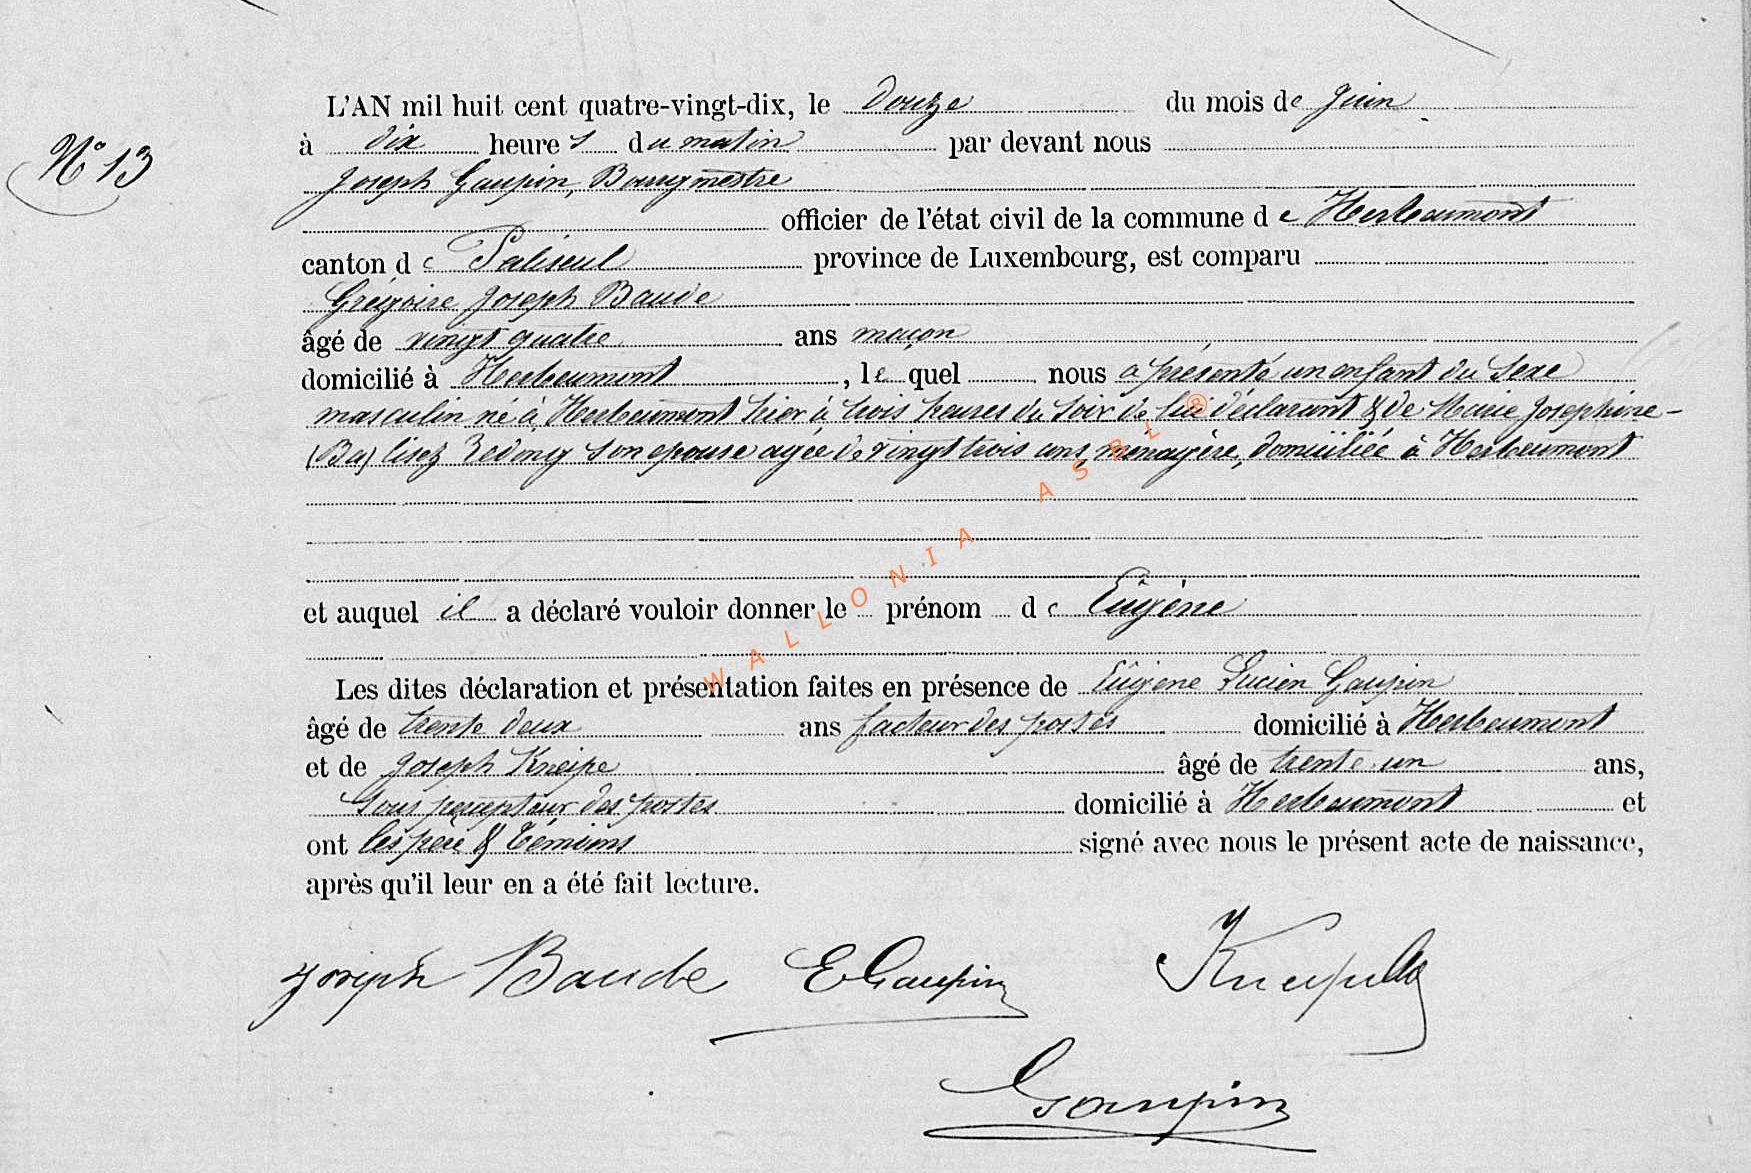 L'AN mil huit cent quatre-vingt-dix, le douze du mois de Juin
N° 13
à dix heures du matin par devant nous
Joseph Gaupin, Bourgmestre
officier de l'état civil de la commune de Herbeumont
canton de Paliseul province de Luxembourg, est comparu
Grégoire Joseph Baude
âgé de vingt quatre ans maçon
domicilié à Herbeumont, lequel nous a présenté un enfant du sexe
masculin né à Herbeumont hier à trois heures du soir de lui déclarant & de Marie Josephine
(Ba) lisez Zedong son epouse agée de vingt trois ans, ménagère, domiciliée à Herbeumont
et auquel il a déclaré vouloir donner le prénom de Eugène
Les dites déclaration et présentation faites en présence de Eugène Lucien Gaupin
âgé de trente deux ans facteur des postes domicilié à Herbeumont
et de Joseph Kneipe âgé de trente un ans,
Sous percepteur des postes domicilié à Herbeumont et
ont les père & témoins signé avec nous le présent acte de naissance,
après qu'il leur en a été fait lecture.
Joseph Baude E Gaupin
Gaupin
WALLONIA ASBL ®